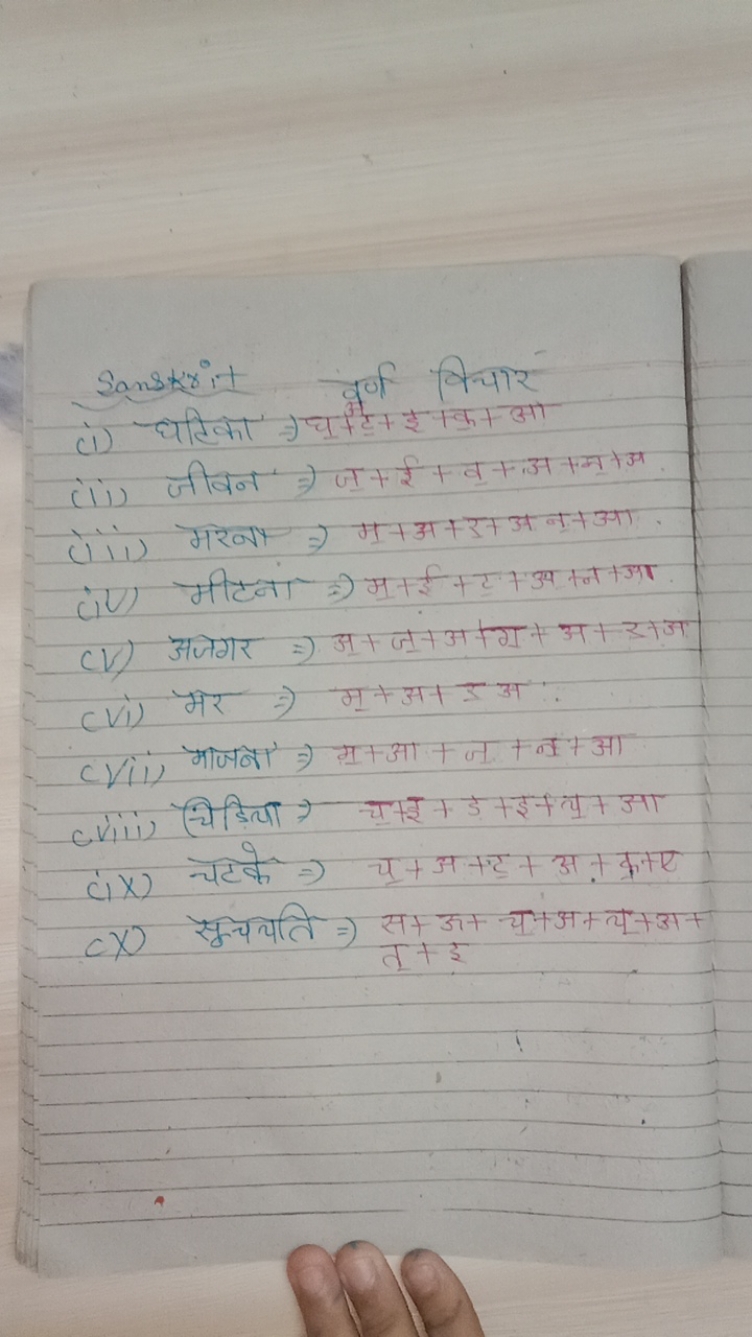 Sanskrit वर्ण विचार
(i) घटिका ⇒ घ्+अ+ट्+इ+क्+आ
(ii) जीवन ⇒ ज्+ई+व्+अ+न्+अ
(iii) मरना ⇒ म्+अ+र्+अ न्+आ
(iv) मीटना ⇒ म्+ई+ट्+अ+न+आ
(v) अजगर ⇒ अ+ज्+अ+ग्+अ+र्+अ
(vi) मर ⇒ म्+अ+र् अ
(vii) माजना ⇒ म्+आ+ज्+न्+आ
(viii) चिड़िया ⇒ च्+इ+ड़्+इ+य्+आ
(ix) चटके ⇒ च्+अ+ट्+अ+क्+ए
(x) सूचयति ⇒ स+ऊ+च्+अ+य्+अ+
त्+इ